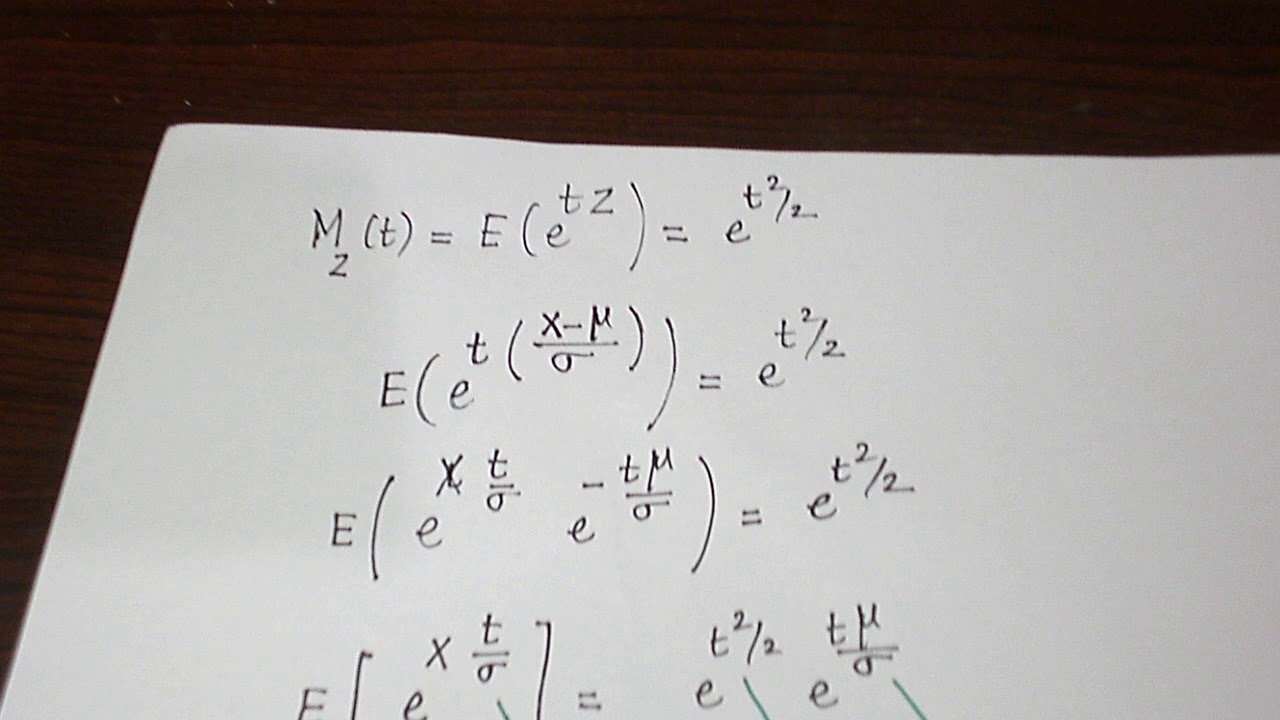 M_Z(t) = E(e^{tZ}) = e^{t²/2}
E(e^{t((X-μ)/σ)}) = e^{t²/2}
E(e^{X t/σ} e^{-tμ/σ}) = e^{t²/2}
E[e^{X t/σ}] = e^{t²/2} e^{tμ/σ}